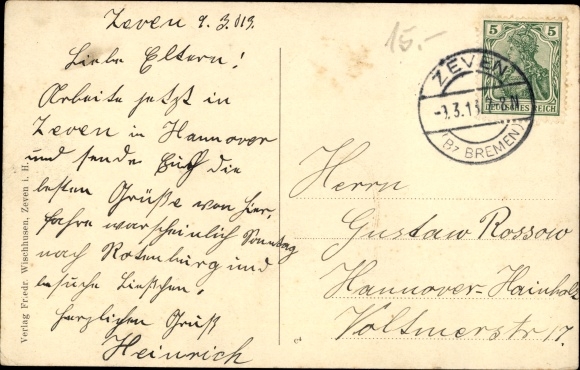 Zeven 9. 3. 013.
Liebe Eltern!
Arbeite jetzt in
Zeven in Hannover
und sende Euch die
besten Grüße von hier,
fahre warscheinlich Sonntag
nach Rotenburg und
besuche Lieschen.
Herzlichen Gruß
Heinrich
15.-
5 5
DEUTSCHES REICH
ZEVEN
3.13
(Bz BREMEN)
Herrn
Gustaw Rossow
Hannover-Hainholz
Voltmerstr 17.
Verlag Friedr. Wischhusen, Zeven i. H.